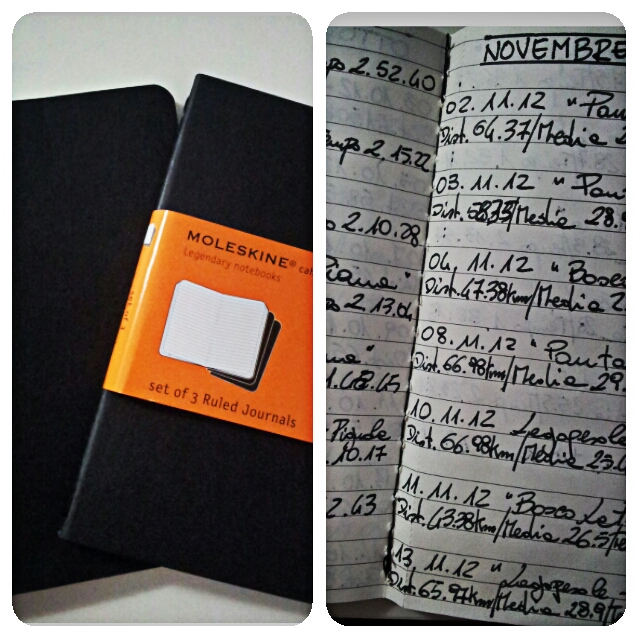 MOLESKINE®
Legendary notebooks
set of 3 Ruled Journals
2.52.40
2.15.22
2.10.28
2.13.04
1.48.45
.10.17
2.43
NOVEMBRE
02. 11.12
Dist. 64.37/Media 2
03. 11.12
Dist. /Media 28.9
04. 11.12 "Bosco
Dist. 47.38km/Media 2
08. 11.12 "Panta
Dist. 66.98km/Media 29.
10. 11.12
Dist. 66.98km/Media 25.
11. 11.12 "Bosco Let
Dist. 43.38km/Media 26.5
13. 11.12 "
Dist. 65.97km/Media 28.9